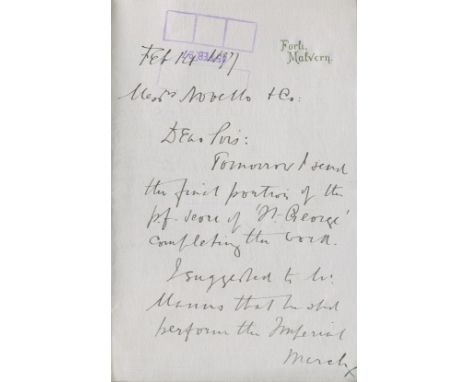 Forli,
Malvern.
Feb 14 1897
Messrs Novello & Co:
Dear Sirs:
Tomorrow I send
the final portion of the
p.f. score of 'St. George'
completing the work.
I suggested to Mr.
Manns that he shd
perform the Imperial
March